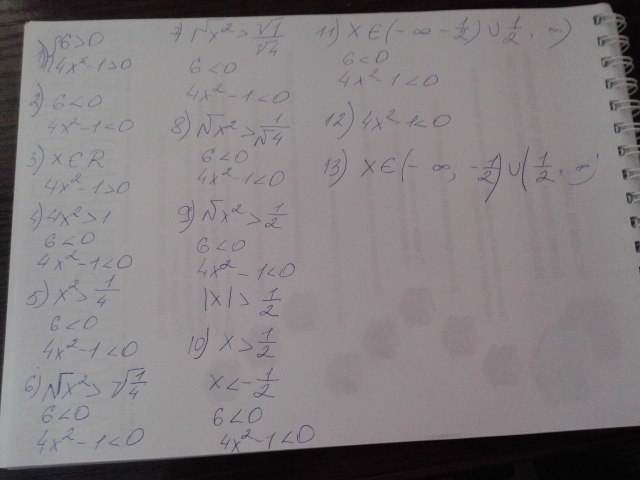 1) { 6>0
4x²-1>0
2) 6<0
4x²-1<0
3) x∈R
4x²-1>0
4) 4x²>1
6<0
4x²-1<0
5) x²>1/4
6<0
4x²-1<0
6) √x²>√1/4
6<0
4x²-1<0
7) √x²>√1/√4
6<0
4x²-1<0
8) √x²>1/√4
6<0
4x²-1<0
9) √x²>1/2
6<0
4x²-1<0
|x|>1/2
10) x>1/2
x<-1/2
6<0
4x²-1<0
11) x∈(-∞-1/2)∪1/2, ∞)
6<0
4x²-1<0
12) 4x²-1<0
13) x∈(-∞, -1/2)∪(1/2, ∞)